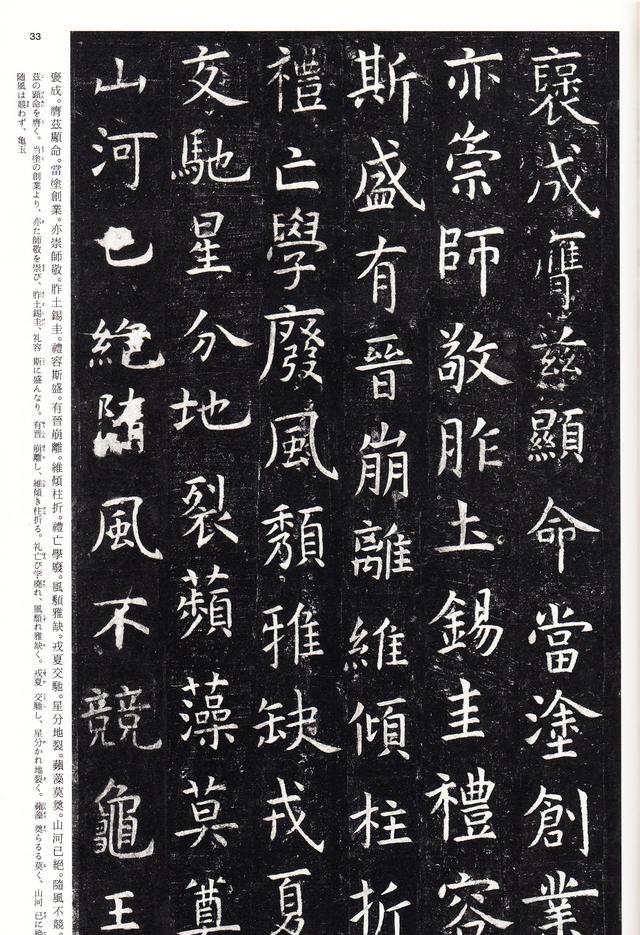 33
褒成膺茲顯命當塗創業
亦崇師敬胙土錫圭禮容
斯盛有晉崩離維傾柱折
禮亡學廢風頽雅缺戎夏
交馳星分地裂蘋藻莫奠
山河已絕隋風不競龜玉
褒成。膺茲顯命。當塗創業。亦崇師敬。胙土錫圭。禮容斯盛。有晉崩離。維傾柱折。禮亡學廢。風頽雅缺。戎夏交馳。星分地裂。蘋藻莫奠。山河已絕。隨風不競。
茲の顕命を膺く。当塗の創業より、亦た師敬を崇び、胙土錫圭、礼容 斯に盛んなり。有晋 崩離し、維傾き柱折る。礼亡び学廃れ、風頽れ雅缺く。戎夏 交馳し、星分かれ地裂く。蘋藻 奠らるる莫く、山河 已に絶
随風は競わず、亀玉